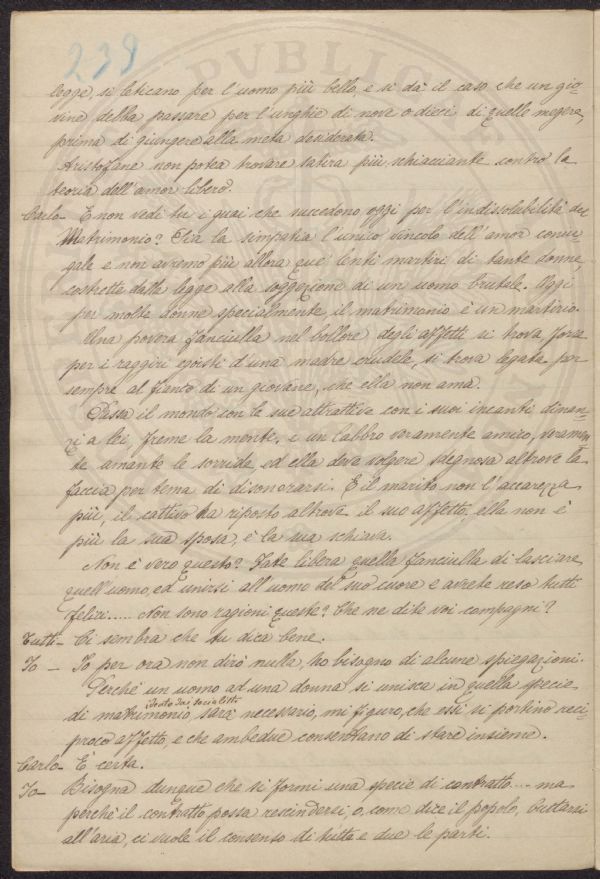 239
legge, si leticano per l'uomo più bello, e si dà il caso che un gio-
vine debba passare per l'unghie di nove o dieci di quelle megere,
prima di giungere alla meta desiderata.
Aristofane non potea trovare satira più schiacciante contro la
teoria dell'amor libero.
Carlo - E non vedi tu i guai che succedono oggi per l'indissolubilità del
Matrimonio? Sia la simpatia l'unico vincolo dell'amor coniu-
gale e non avremo più allora que' lenti martiri di tante donne,
costrette dalla legge alla soggezione di un uomo brutale. Oggi
per molte donne specialmente il matrimonio è un martirio.
Una povera fanciulla nel bollore degli affetti si trova forse
per i raggiri egoisti d'una madre crudele, si trova legata per
sempre al fianco di un giovane, che ella non ama.
Passa il mondo con le sue attrattive con i suoi incanti dinan-
zi a lei, freme la mente, e un labbro veramente amico, veramen
te amante le sorride, ed ella deve volgere sdegnosa altrove la
faccia per tema di disonorarsi. E il marito non l'accarezza
più, il cattivo ha riposto altrove il suo affetto, ella non è
più la sua sposa, è la sua schiava.
Non è vero questo? Fate libera quella fanciulla di lasciare
quell'uomo, ed unirsi all'uomo del suo cuore e avrete reso tutti
felici..... Non sono ragioni queste? Che ne dite voi compagni?
Tutti - Ci sembra che tu dica bene.
Io - Io per ora non dirò nulla, ho bisogno di alcune spiegazioni.
Perchè un uomo ad una donna si unisca in quella specie
di matrimonio sarà necessario, mi figuro, che essi si portino reci-
proco affetto, e che ambedue consentano di stare insieme.
Carlo - È certa.
Io - Bisogna dunque che si formi una specie di contratto... ma
perchè il contratto possa rescindersi, o, come dice il popolo, buttarsi
all'aria, ci vuole il consenso di tutta e due le parti.